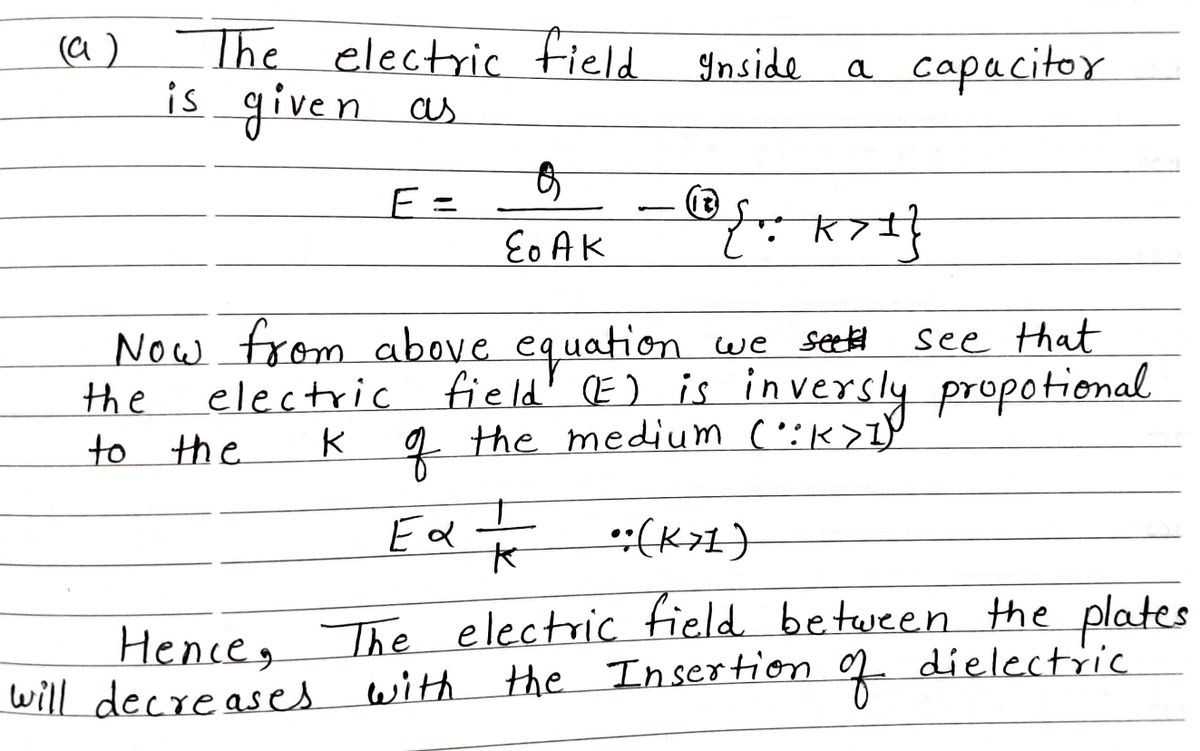 (a) The electric field Inside a capacitor
is given as
E = Q / ε0 A K — {∵ K > 1}
Now from above equation we see that
the electric field (E) is inversly propotional
to the K of the medium (∵ K > 1)
E ∝ 1/K ∵ (K > 1)
Hence, The electric field between the plates
will decreases with the Insertion of dielectric